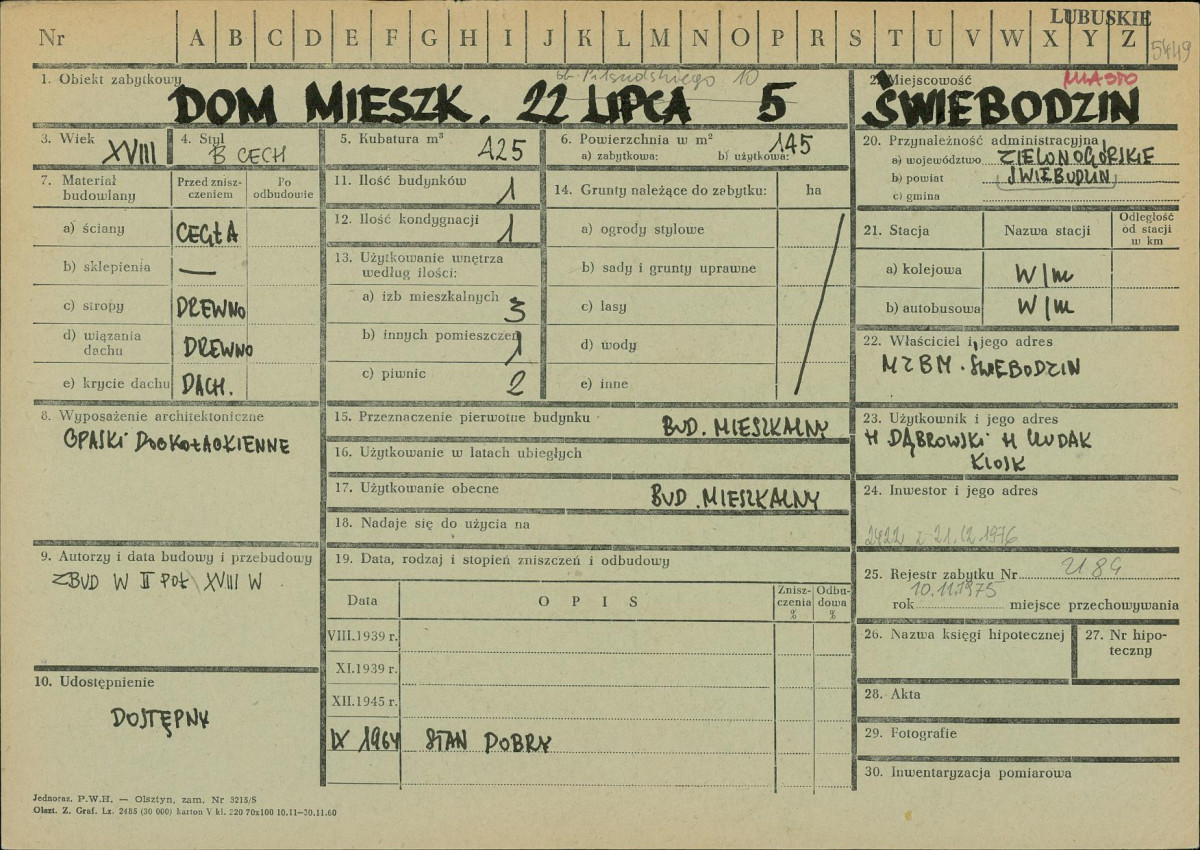 LUBUSKIE
Nr A B C D E F G H I J K L M N O P R S T U V W X Y Z
5449
1. Obiekt zabytkowy
ob. Piłsudskiego 10
DOM MIESZK. 22 LIPCA 5
2. Miejscowość
MIASTO
ŚWIEBODZIN
3. Wiek XVIII
4. Styl B CECH
5. Kubatura m³ 425
6. Powierzchnia w m²
a) zabytkowa: b) użytkowa: 145
20. Przynależność administracyjna
a) województwo ZIELONOGÓRSKIE
b) powiat ŚWIEBODZIN
c) gmina
7. Materiał budowlany
Przed zniszczeniem
Po odbudowie
a) ściany CEGŁA
b) sklepienia —
c) stropy DREWNO
d) wiązania dachu DREWNO
e) krycie dachu DACH.
11. Ilość budynków 1
12. Ilość kondygnacji 1
13. Użytkowanie wnętrza według ilości:
a) izb mieszkalnych 3
b) innych pomieszczeń 1
c) piwnic 2
14. Grunty należące do zabytku: ha
a) ogrody stylowe
b) sady i grunty uprawne
c) lasy
d) wody
e) inne
21. Stacja
Nazwa stacji
Odległość od stacji w km
a) kolejowa W/m
b) autobusowa W/m
22. Właściciel i jego adres
MZBM. ŚWIEBODZIN
8. Wyposażenie architektoniczne
OPASKI DOOKOŁAOKIENNE
15. Przeznaczenie pierwotne budynku BUD. MIESZKALNY
16. Użytkowanie w latach ubiegłych
17. Użytkowanie obecne BUD. MIESZKALNY
18. Nadaje się do użycia na
23. Użytkownik i jego adres
H DĄBROWSKI H
KIOSK
24. Inwestor i jego adres
2422 z 21.12.1976
9. Autorzy i data budowy i przebudowy
ZBUD W II POŁ XVIII W
19. Data, rodzaj i stopień zniszczeń i odbudowy
Data
OPIS
Zniszczenia %
Odbudowa %
VIII.1939 r.
XI.1939 r.
XII.1945 r.
IX 1964 STAN DOBRY
25. Rejestr zabytku Nr 2184
10.11.1975
rok miejsce przechowywania
26. Nazwa księgi hipotecznej
27. Nr hipoteczny
28. Akta
29. Fotografie
30. Inwentaryzacja pomiarowa
10. Udostępnienie
DOSTĘPNY
Jednoraz. P.W.H. — Olsztyn, zam. Nr 3215/S
Olszt. Z. Graf. Lz. 2485 (30 000) karton V kl. 220 70x100 10.11—30.11.60